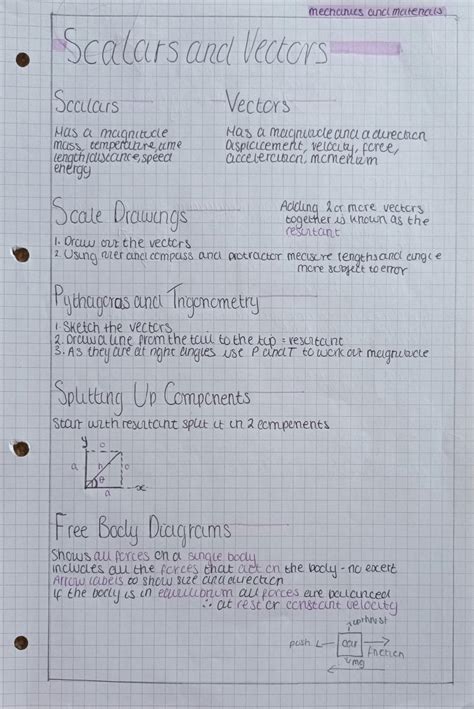 mechanics and materials
Scalars and Vectors
Scalars
Has a magnitude
mass, temperature, time
length/distance, speed
energy
Vectors
Has a magnitude and a direction
displacement, velocity, force,
acceleration, momentum
Scale Drawings
Adding 2 or more vectors
together is known as the
resultant
1. Draw out the vectors
2. Using ruler and compass and protractor measure lengths and angle
more subject to error
Pythagoras and Trigonometry
1. Sketch the vectors
2. Draw a line from the tail to the tip = resultant
3. As they are at right angles use P and T to work out magnitude
Splitting Up Components
Start with resultant split it in 2 components
y
o
a
h
o
θ
a
x
Free Body Diagrams
Shows all forces on a single body
includes all the forces that act on the body - no exert
Arrow labels to show size and direction
if the body is in equilibrium all forces are balanced
∴ at rest or constant velocity
push
car
friction
mg